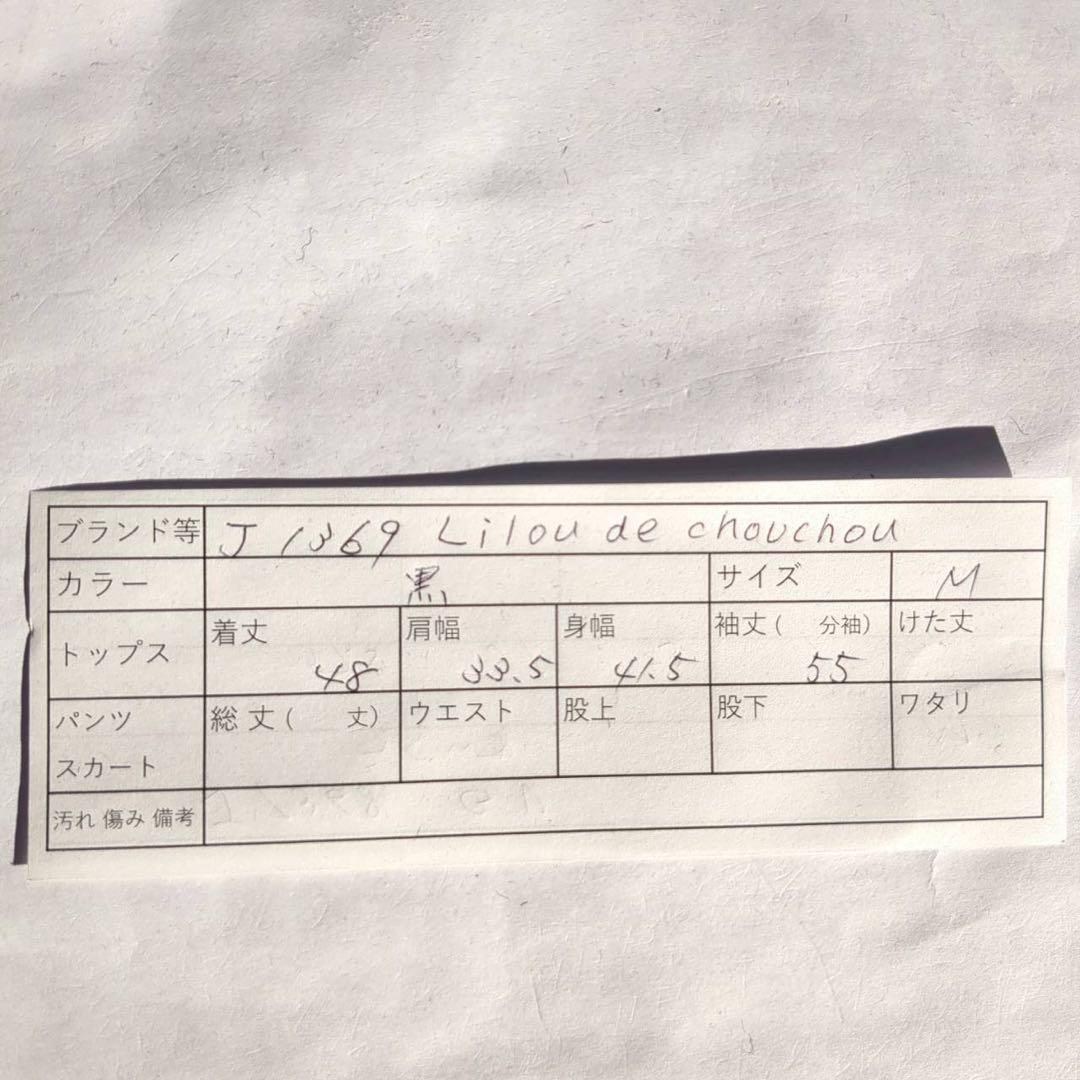 ブランド等 J 1369 Lilou de chouchou
カラー 黒 サイズ M
トップス 着丈 48 肩幅 33.5 身幅 41.5 袖丈 ( 分袖) 55 けた丈
パンツ スカート 総丈 ( 丈) ウエスト 股上 股下 ワタリ
汚れ 傷み 備考